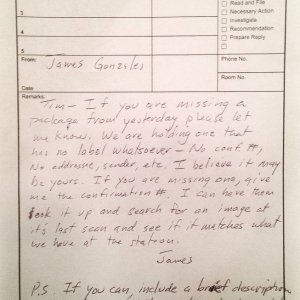 3
4
5
Read and File
Necessary Action
Investigate
Recommendation
Prepare Reply
From:
James Gonzales
Phone No.
Room No.
Date
Remarks:
Tim - If you are missing a
package from yesterday please let
me know. We are holding one that
has no label whatsoever - No conf #,
No addresse, sender, etc. I believe it may
be yours. If you are missing one, give
me the confirmation #. I can have them
look it up and search for an image at
it's last scan and see if it matches what
we have at the station.
James
P.S. If you can, include a brief description